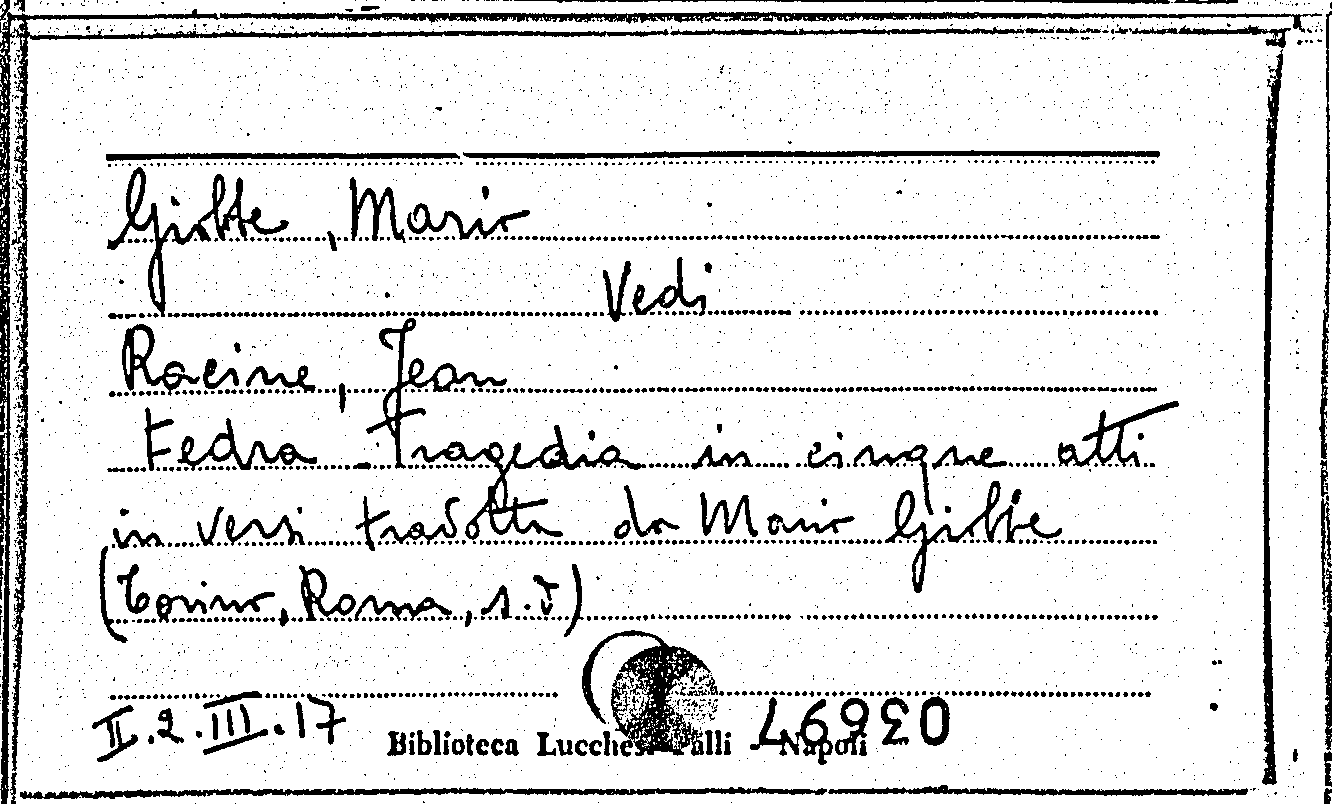 Giobbe, Mario
Vedi
Racine, Jean
Fedra - Tragedia in cinque atti
in versi tradotta da Mario Giobbe
(Torino, Roma, s.d)
II.2.III.17
Biblioteca Lucchesi Palli - Napoli